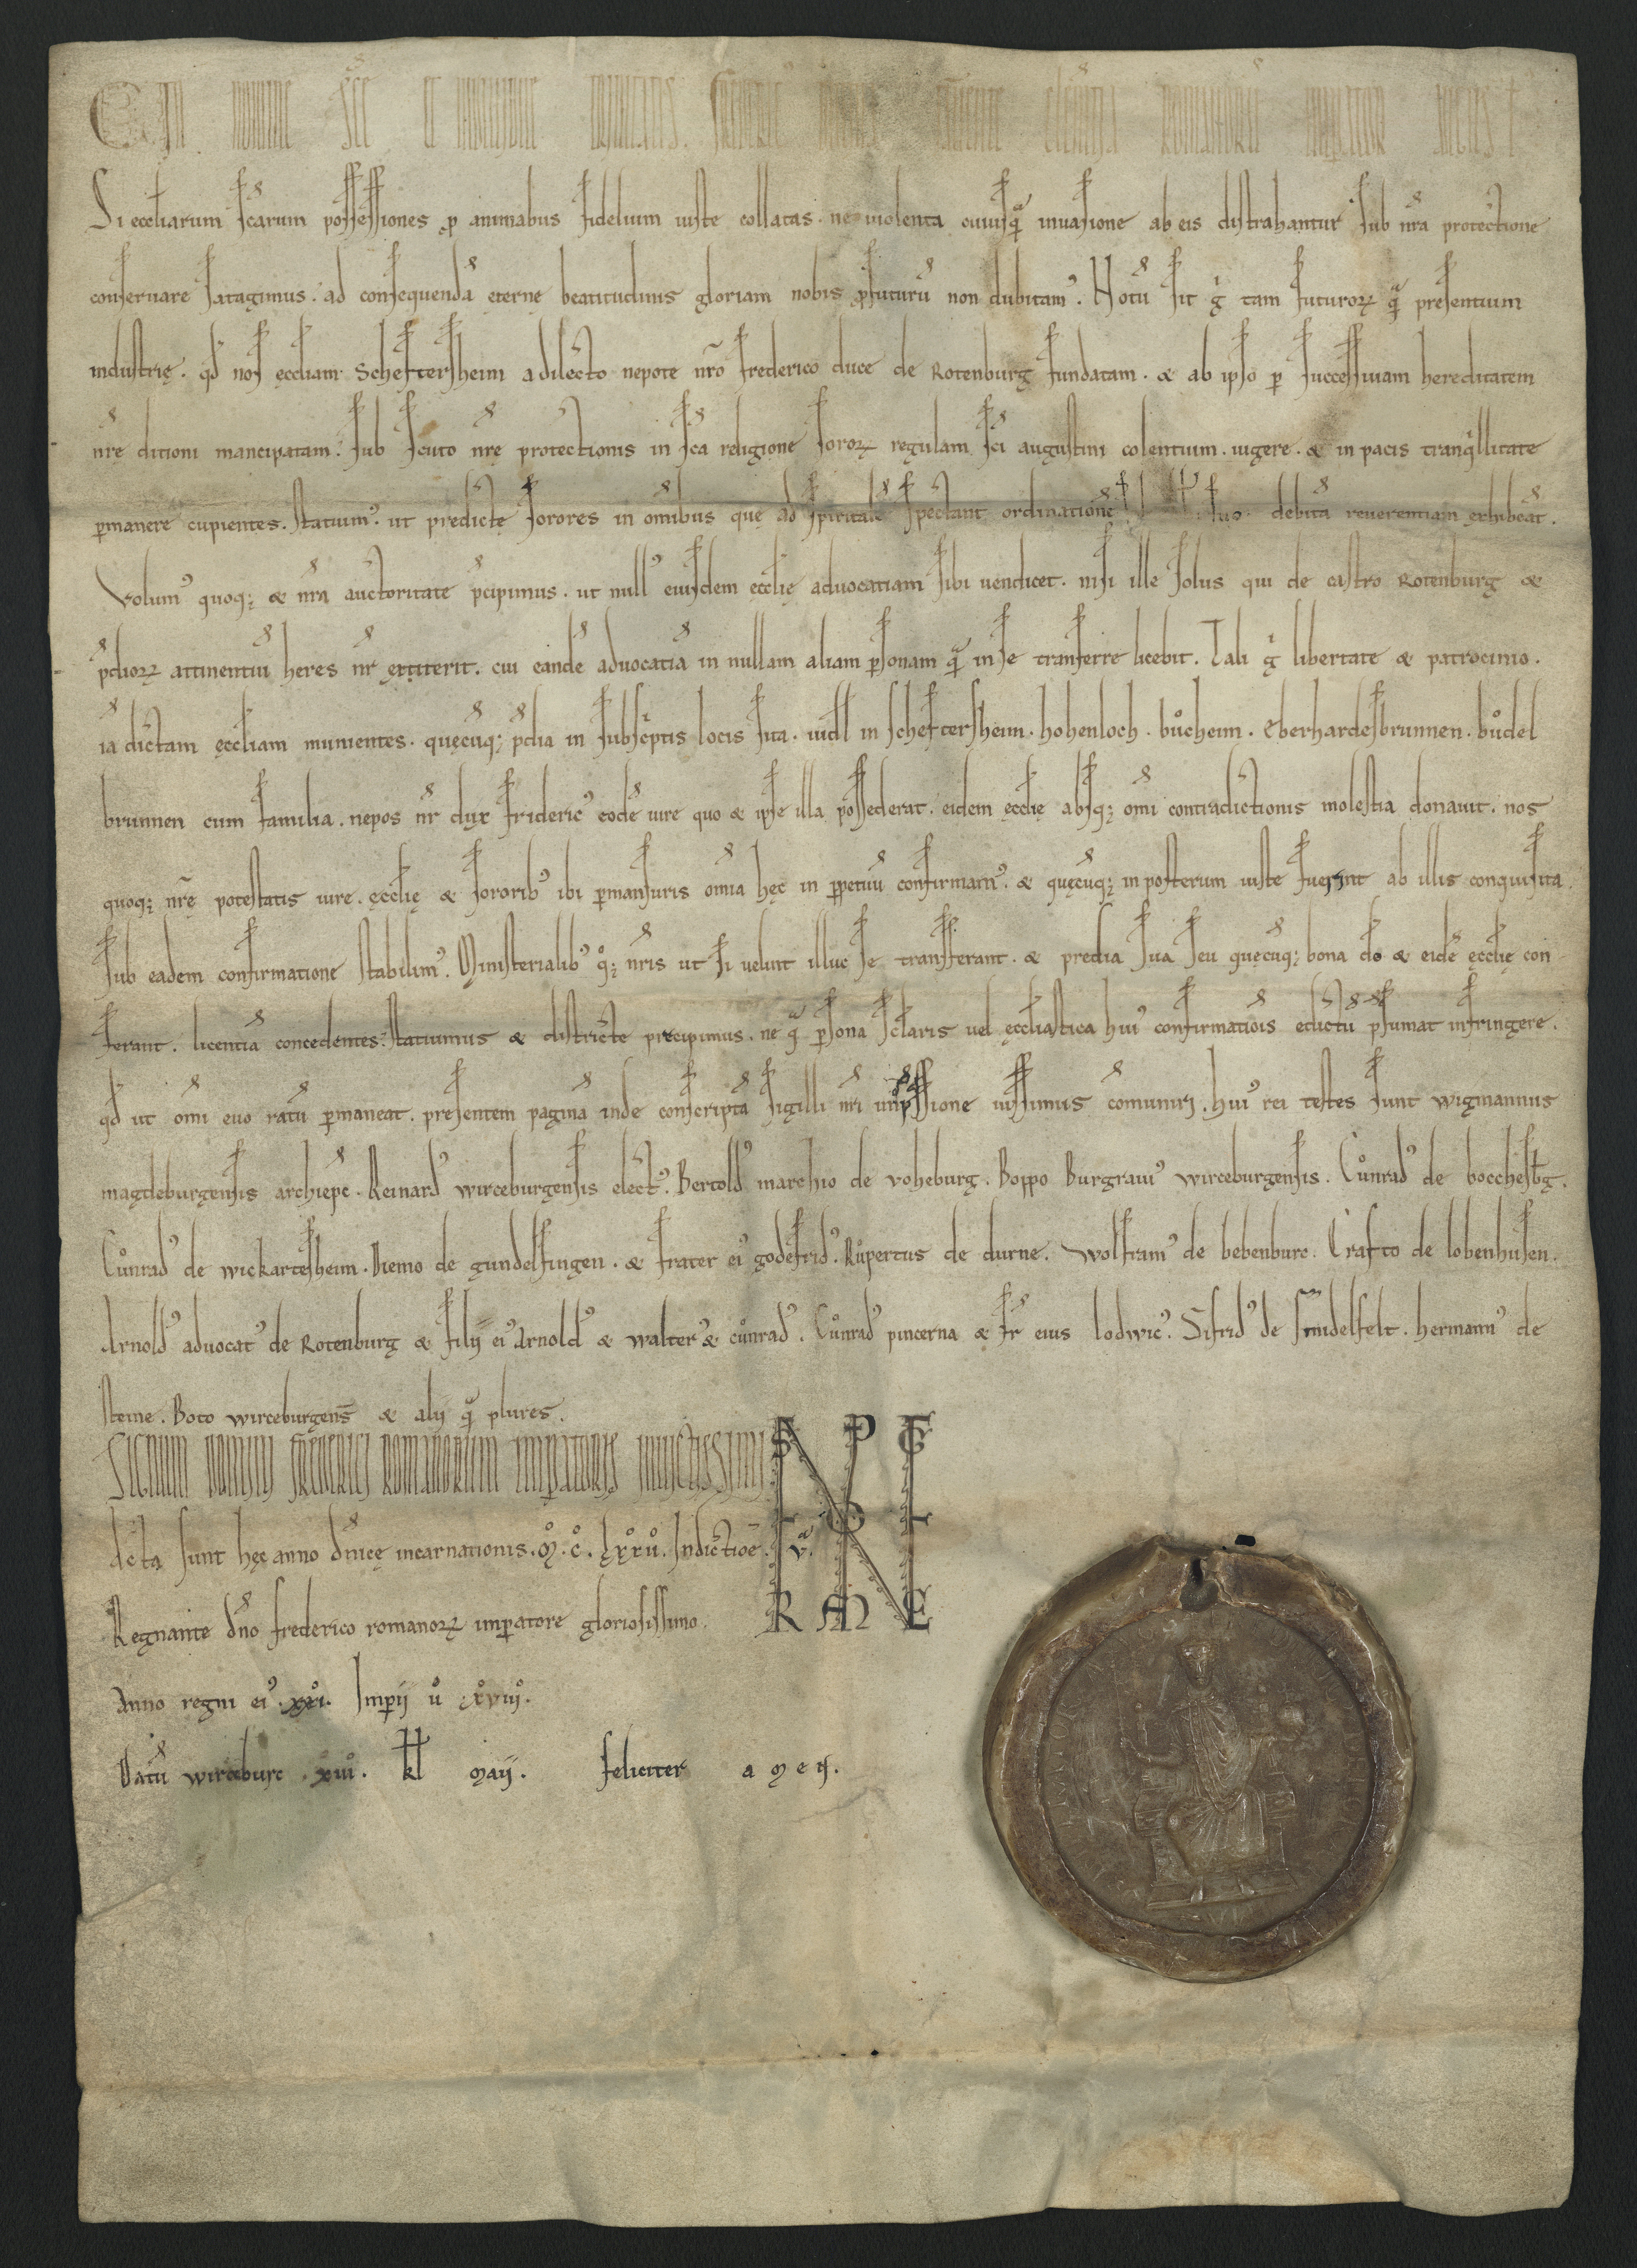 C. In nomine sc̄e et indiuidue trinitatis. frideric᾽ diuina fauente clem̄tia romanorū imꝑator augustus
Si eccl̄iarum sc̄arum possessiones ꝓ animabus fidelium iuste collatas. ne uiolenta cuiusqͣ inuasione ab eis distrahantur sub nr̄a protectione
conseruare satagimus. ad consequendā eterne̜ beatitudinis gloriam nobis ꝓfuturū non dubitam᾽. Notū sit g̊ tam futuroꝝ qͣ presentium
industrie̜. qd̄ nos e̜ccl̄iam Scheftersheim a dilecto nepote nr̄o frederico duce de Rotenburg fundatam. & ab ipso ꝑ successiuam hereditatem
nr̄e̜ ditioni mancipatam. sub scuto nr̄e̜ protectionis in sc̄a religione soroꝝ regulam sc̄i augustini colentium. uigere. & in pacis tranqͥllitate
ꝑmanere cupientes. statuim᾽. ut predicte̜ sorores in om̄ibus que̜ ad sp̄iritalē spectant ordinationē suo debitā reuerentiam exhibeāt.
Volum᾽ quoqꝫ & nr̄a auctoritate p̄cipimus. ut null᾽ eiusdem e̜ccl̄ie̜ aduocatiam sibi uendicet. nisi ille solus qui de castro Rotenburg &
p̄dioꝝ attinentiū heres nr̄ extiterit. cui eandē aduocatiā in nullam aliam ꝑsonam qͣ in se transferre licebit. Tali g̊ libertate & patrocinio.
iā dictam e̜ccl̄iam munientes. que̜cūqꝫ p̄dia in subscͥptis locis sita. uidl̄ in scheftersheim. hohenloch. bůcheim. Eberhardesbrunnen. bůdel
brunnen cum familia. nepos nr̄ dux frideric᾽ eodē iure quo & ipse illa possederat. eidem e̜ccl̄ie̜ absqꝫ om̄i contradictionis molestia donauit. nos
quoqꝫ nr̄e̜ potestatis iure. e̜ccl̄ie̜ & sororib᾽ ibi ꝑmansuris om̄ia he̜c in ꝑpetuū confirmam᾽. & que̜cūqꝫ in posterum iuste fuerint ab illis conquisita.
sub eadem confirmatione stabilim᾽. Ministerialib᾽ qͦꝫ nr̄is ut si uelint illuc se transferant. & predia sua seu que̜cūqꝫ bona dō & eidē e̜ccl̄ie̜ con
ferant. licentiā concedentes. statuimus & districte precipimus. ne qͣ ꝑsona sc̄laris uel e̜ccl̄iastica hui᾽ confirmatiōis edictū p̄sumat infringere.
qd̄ ut om̄i euo ratū ꝑmaneat. presentem paginā inde conscriptā sigilli nr̄i imp̄ssione iussimus com̄uniri. hui᾽ rei testes sunt wigmannus
magdeburgensis archiep̄c. Reinard᾽ wirceburgensis elect᾽. Bertold᾽ marchio de voheburg. Boppo Burgraui᾽ wirceburgensis. Cůnrad᾽ de bocchesb̄g.
Cůnrad᾽ de wickartesheim. Diemo de gundelfingen. & frater ei᾽ godefrid᾽. Růpertus de durne. wolfram᾽ de bebenburc. Crafto de lobenhusen.
Arnold᾽ aduocat᾽ de Rotenburg & filij ei᾽ Arnold᾽ & walter᾽ & cůnrad᾽. Cůnrad᾽ pincerna & fr̄ eius lodwic᾽. Sifrid᾽ de sindelfelt. hermann᾽ de
steine. Boto wirceburgens̄ & alij qͣ plures.
Signum domini frederici romanorum imperatoris inuictissimi.
dcta sunt he̜c anno dn̄ice̜ incarnationis. Mͦ. Cͦ. lxxͦiiͦ. Indictiōe. vͣ.
Regnante dn̄o frederico romanoꝝ imꝑatore gloriosissimo.
Anno regni ei᾽. xxiͦ. Imꝑij ů xͦviiiͦ.
Datū wirceburc. xiiiͦ. kl̄ Maij. feliciter amen.